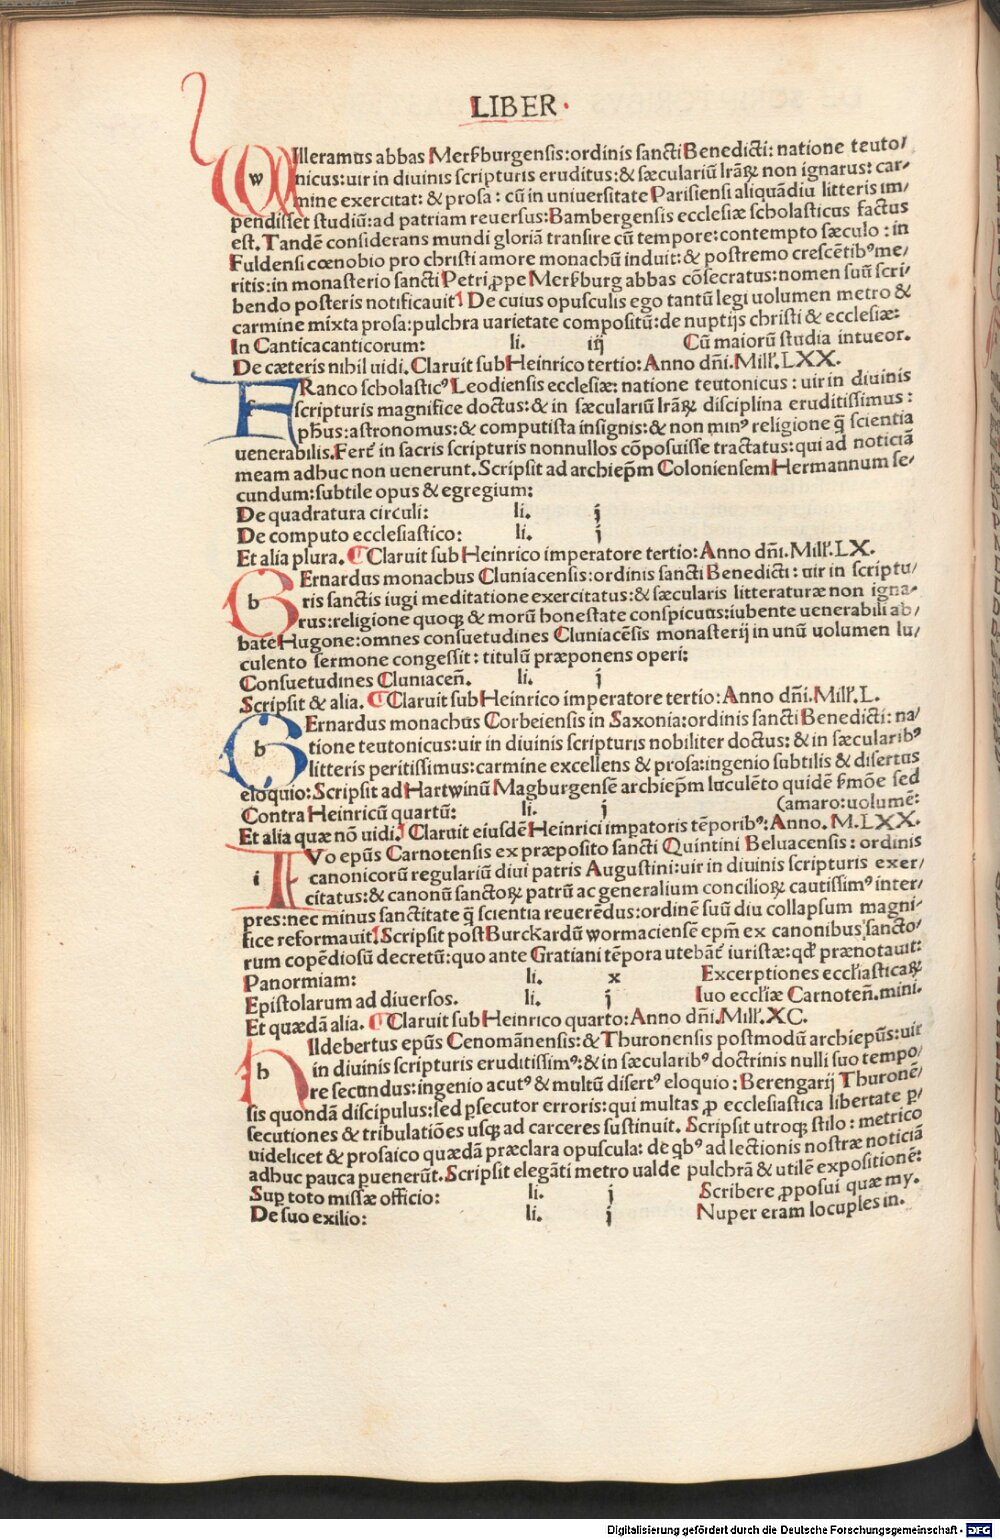 LIBER
WIlleramus abbas Merſburgenſis:ordinis ſancti Benedicti: natione teuto/
nicus:uir in diuinis ſcripturis eruditus:& ſæculariũ lr̃aꝝ non ignarus: car-
mine exercitat: & proſa: cũ in uniuerſitate Pariſienſi aliquãdiu litteris im/
pendiſſet ſtudiũ:ad patriam reuerſus:Bambergenſis eccleſiæ ſcholaſticus factus
eſt. Tandẽ conſiderans mundi gloriã tranſire cũ tempore:contempto ſæculo: in
Fuldenſi cœnobio pro chriſti amore monachũ induit:& poſtremo creſcẽtibꝰ me/
ritis:in monaſterio ſancti Petri ꝓpe Merſburg abbas cõſecratus:nomen ſuũ ſcri/
bendo poſteris notificauit De cuius opuſculis ego tantũ legi uolumen metro &
carmine mixta proſa:pulchra uarietate compoſitũ:de nuptijs chriſti & eccleſiæ:
In Canticacanticorum: li. iij Cũ maiorũ ſtudia intueor.
De cæteris nihil uidi. Claruit ſub Heinrico tertio: Anno dñi. Mill'. LXX.
FRanco ſcholaſticꝰ Leodienſis eccleſiæ: natione teutonicus: uir in diuinis
ſcripturis magnifice doctus:& in ſæculariũ lr̃aꝝ diſciplina eruditiſſimus:
ph̃us:aſtronomus:& computiſta inſignis:& non minꝰ religione q̃ ſcientia
uenerabilis. Fert̃ in ſacris ſcripturis nonnullos cõpoſuiſſe tractatus:qui ad noticiã
meam adhuc non uenerunt. Scripſit ad archiep̃m Colonienſem Hermannum ſe/
cundum:ſubtile opus & egregium:
De quadratura circuli: li. j
De computo eccleſiaſtico: li. j
Et alia plura. Claruit ſub Heinrico imperatore tertio: Anno dñi. Mill'. LX.
BErnardus monachus Cluniacenſis:ordinis ſancti Benedicti: uir in ſcriptu/
ris ſanctis iugi meditatione exercitatus:& ſæcularis litteraturæ non igna-
rus:religione quoqꝫ & morũ honeſtate conſpicuus:iubente uenerabili ab/
bate Hugone:omnes conſuetudines Cluniacẽſis monaſterij in unũ uolumen lu/
culento ſermone congeſſit: titulũ præponens operi:
Conſuetudines Cluniaceñ. li. j
Scripſit & alia. Claruit ſub Heinrico imperatore tertio: Anno dñi. Mill'. L.
BErnardus monachus Corbeienſis in Saxonia:ordinis ſancti Benedicti: na/
tione teutonicus:uir in diuinis ſcripturis nobiliter doctus: & in ſæcularibꝰ
litteris peritiſſimus:carmine excellens & proſa:ingenio ſubtilis & diſertus
eloquio: Scripſit ad Hartwinũ Magburgenſẽ archiep̃m luculẽto quidẽ ſ̃mõe ſed
Contra Heinricũ quartũ: li. j (amaro:uolumẽ:
Et alia quæ nõ uidi. Claruit eiuſdẽ Heinrici imp̱atoris tẽporibꝰ: Anno. M.LXX.
IVo ep̃us Carnotenſis ex præpoſito ſancti Quintini Beluacenſis: ordinis
canonicorũ regulariũ diui patris Auguſtini:uir in diuinis ſcripturis exer/
citatus:& canonũ ſanctoꝝ patrũ ac generalium concilioꝝ cautiſſimꝰ inter/
pres:nec minus ſanctitate q̃ ſcientia reuerẽdus:ordinẽ ſuũ diu collapſum magni/
fice reformauit. Scripſit poſt Burckardũ wormacienſẽ epm̃ ex canonibus ſancto/
rum copẽdioſũ decretũ:quo ante Gratiani tẽpora utebãt̃ iuriſtæ:qd̃ prænotauit:
Panormiam: li. x Excerptiones eccl'iaſticaꝝ
Epiſtolarum ad diuerſos. li. j Iuo eccl'iæ Carnoteñ. mini.
Et quædã alia. Claruit ſub Heinrico quarto: Anno dñi. Mill'. XC.
HIldebertus ep̃us Cenomãnenſis:& Thuronenſis poſtmodũ archiep̃us:uir
in diuinis ſcripturis eruditiſſimꝰ:& in ſæcularibꝰ doctrinis nulli ſuo tempo/
re ſecundus:ingenio acutꝰ & multũ diſertꝰ eloquio: Berengarij Thuronẽ/
ſis quondã diſcipulus:ſed ꝑſecutor erroris:qui multas ꝓ eccleſiaſtica libertate ꝑ/
ſecutiones & tribulatiões uſqꝫ ad carceres ſuſtinuit. Scripſit utroqꝫ ſtilo: metrico
uidelicet & proſaico quædã præclara opuſcula: de qbꝰ ad lectionis noſtræ noticiã
adhuc pauca puenerũt. Scripſit elegãti metro ualde pulchrã & utilẽ expoſitionẽ:
Suꝑ toto miſſæ officio: li. j Scribere ꝓpoſui quæ my.
De ſuo exilio: li. j Nuper eram locuples in.
Digitalisierung gefördert durch die Deutsche Forschungsgemeinschaft - DFG